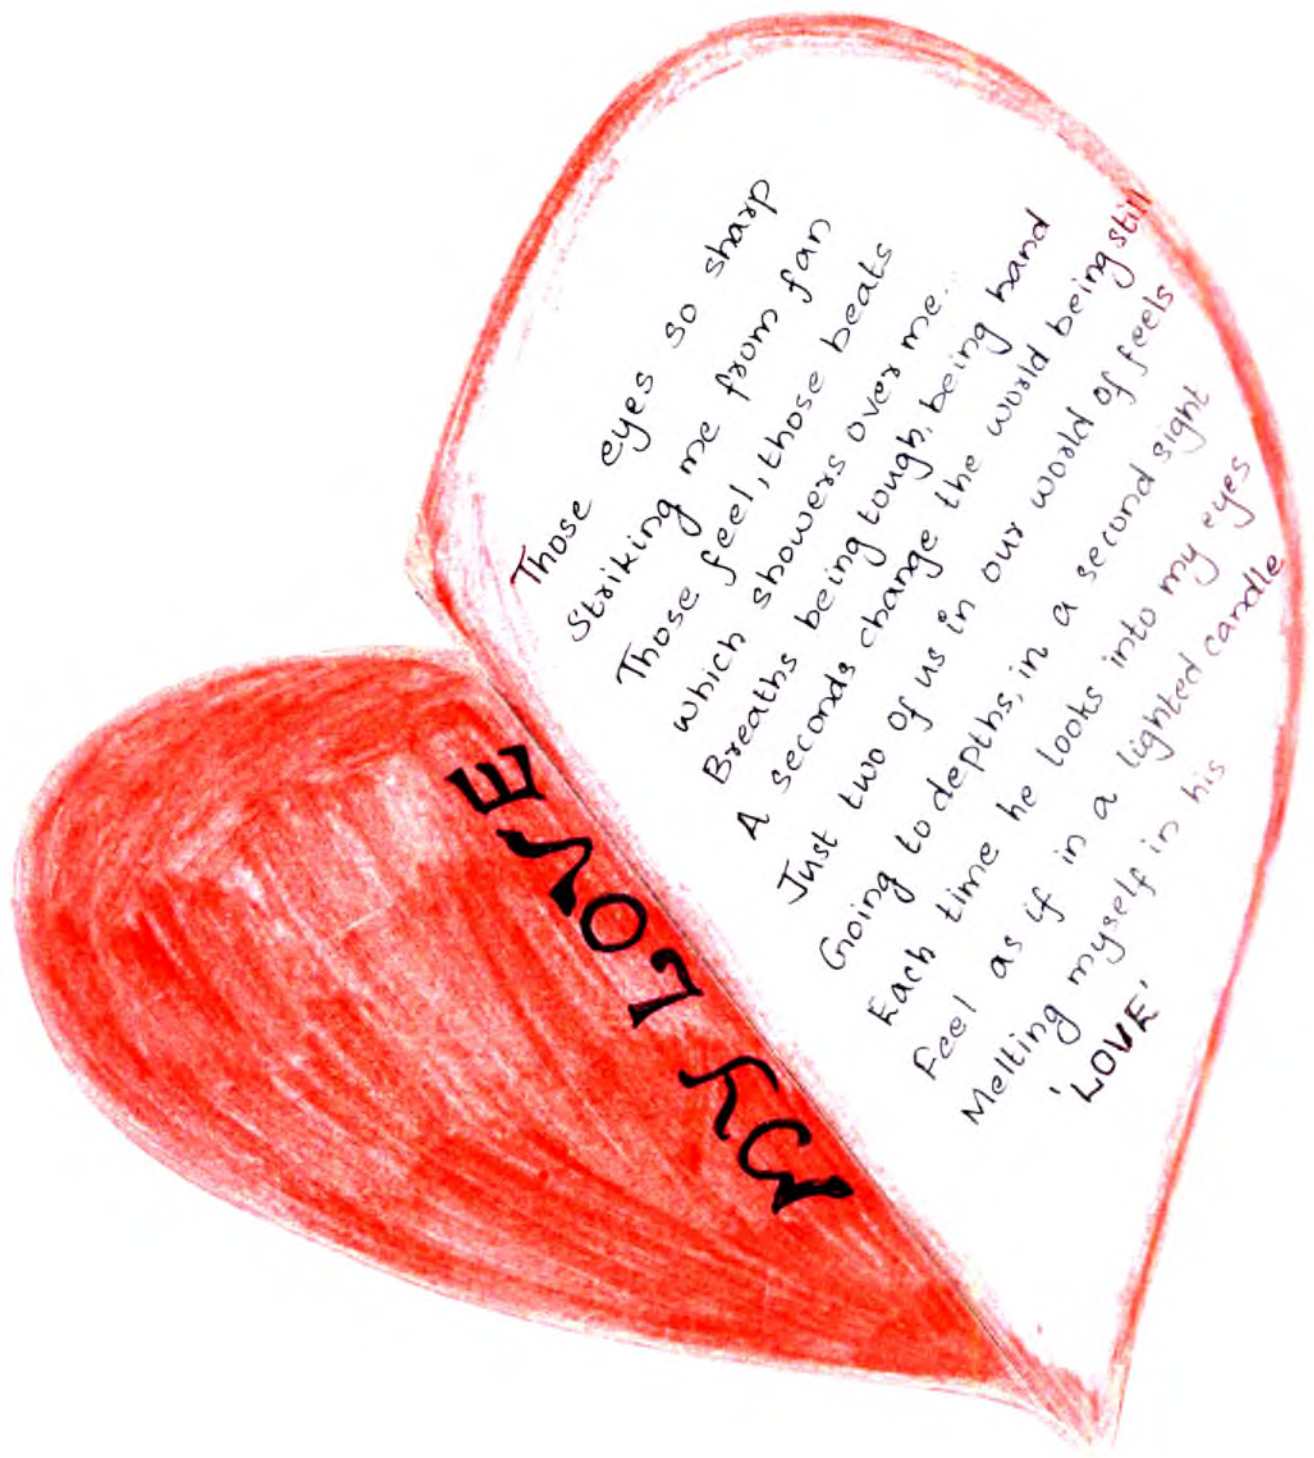 MY LOVE
Those eyes so sharp
Striking me from far
Those feel, those beats
which showers over me...
Breaths being tough, being hard
A seconds change the world being still
Just two of us in our world of feels
Going to depths, in a second sight
Each time he looks into my eyes
Feel as if in a lighted candle
Melting myself in his
'LOVE'